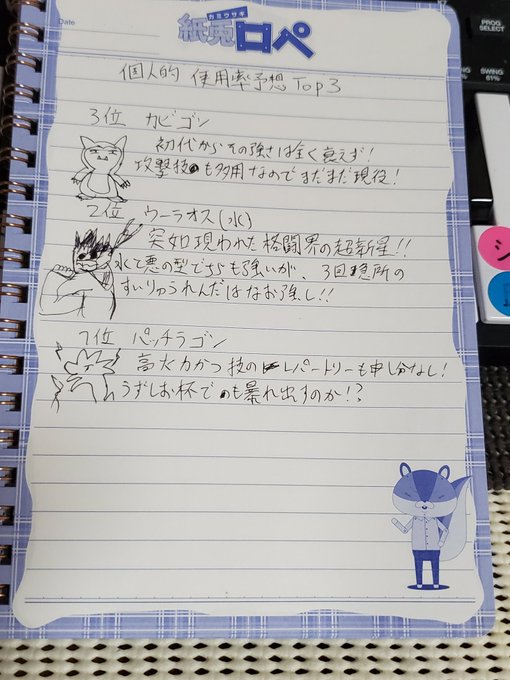 Date
カミウサギ
紙兎ロペ
個人的 使用率予想 Top3
3位 カビゴン
初代からその強さは全く衰えず!
攻撃技も多用なのでまだまだ現役!
2位 ウーラオス(水)
突如現われた格闘界の超新星!!
水て悪の型どちらも強いが、3回急所の
すいりゅうれんだはなお強し!!
1位 パッチラゴン
高火力かつ技のレパートリーも申し分なし!
うずしお杯でも暴れ出すのか!?
PROG
SELECT
SWING
61%
シ